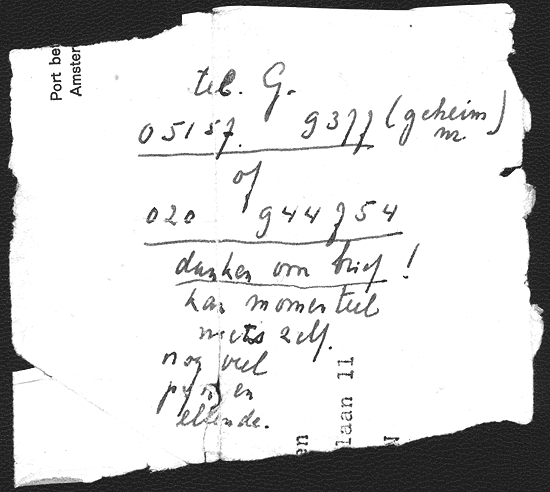 Port be
Amster
tel. G.
05157. 9377 (geheim
nr.)
of
020 944754
danken om brief!
kan momenteel
niets zelf.
nog veel
pijn en
ellende.
en
laan 11
N